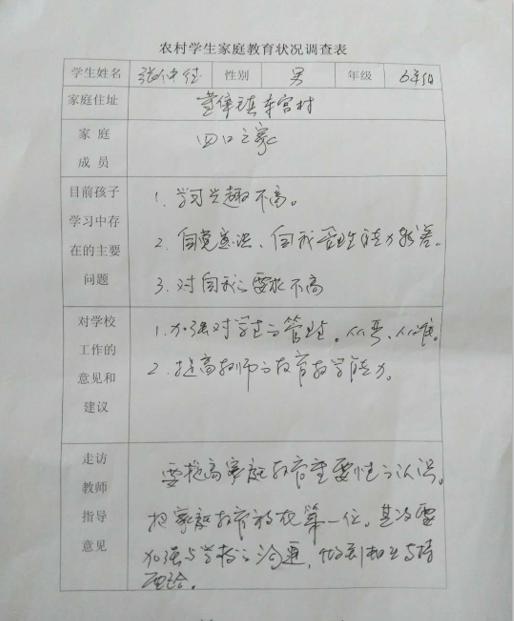 农村学生家庭教育状况调查表
学生姓名 张 性别 男 年级
家庭住址 镇车宫村
家庭 四口之家
成员
目前孩子 1. 学习兴趣不高。
学习中存 2. 自觉意识、自我管理能力较差。
在的主要
问题 3. 对自我之要求不高
对学校 1. 加强对学生之管理。从严、从难。
工作的 2. 提高教师之教育教学能力。
意见和
建议
走访 要提高家庭教育重要性之认识。
教师 把家庭教育放在第一位。其次要
指导 加强与学校之沟通,做到相互支持
意见 配合。